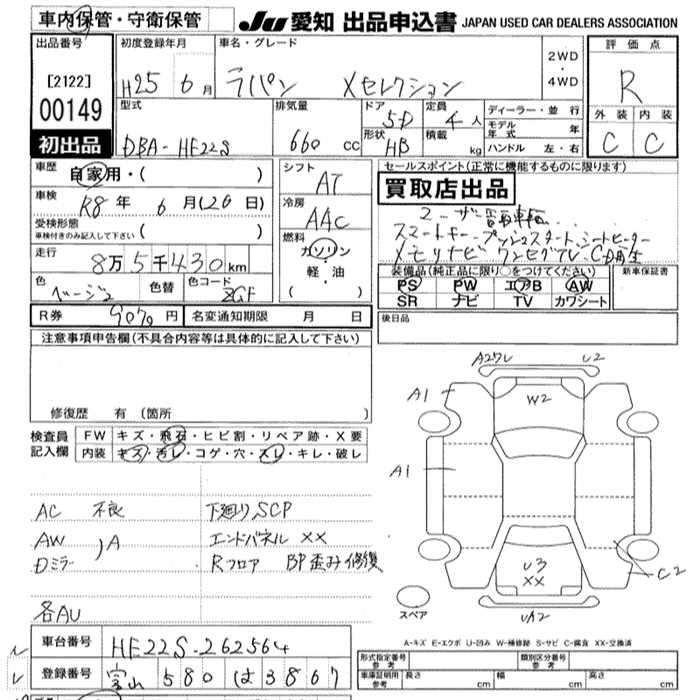 車内保管・守衛保管
JU 愛知 出品申込書 JAPAN USED CAR DEALERS ASSOCIATION
出品番号
[2122]
00149
初出品
初度登録年月
H25 6月
車名・グレード
ラパン Xセレクション
2WD
・
4WD
評価点
R
外装 内装
C C
型式
DBA-HE22S
排気量
660 cc
ドア
5D
形状
HB
定員
4人
積載
kg
ディーラー・並行
モデル年式 年
ハンドル 左・右
車歴
自家用・( )
車検
R8年 6月(26日)
受検形態
車検付きのみ記入して下さい ( )
走行
8万5千430km
色
ベージュ2
色替
色コード
ZGF
シフト
AT
冷房
AAC
燃料
ガソリン
軽・油
( )
セールスポイント(正常に機能するものに限ります)
買取店出品
スマートキー プッシュスタート シートヒーター
メモリナビ ワンセグTV CD再生
装備品(純正品に限り○をつけてください)
PS PW エアB AW
SR ナビ TV カワシート
新車保証書
R券 9070円
名変通知期限 月 日
後日品
注意事項申告欄(不具合内容等は具体的に記入して下さい)
修復歴 有(箇所 )
検査員記入欄
FW キズ・飛石・ヒビ割・リペア跡・X要
内装 キズ・汚レ・コゲ・穴・スレ・キレ・破レ
AC 不良
AW
Dミラー ) A
各AU
下廻り、SCP
エンドパネル XX
Rフロア BP歪み修復
A2ワレ U2
A1
W2
A1
U3
XX
C2
UA2
スペア
A-キズ E-エクボ U-凹み W-補修跡 S-サビ C-腐食 XX-交換済
車台番号 HE22S-262564
登録番号 富山 580 は 3867
形式指定番号
参考
類別区分番号
参考
車庫証明用
参考
長さ cm
幅 cm
高さ cm